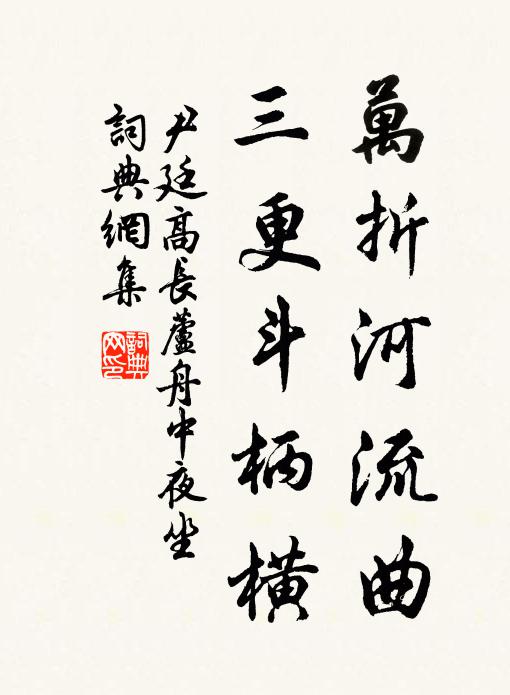 萬折河流曲
三更斗柄橫
尹廷高長蘆舟中夜坐
詞典網集
詞典
网印